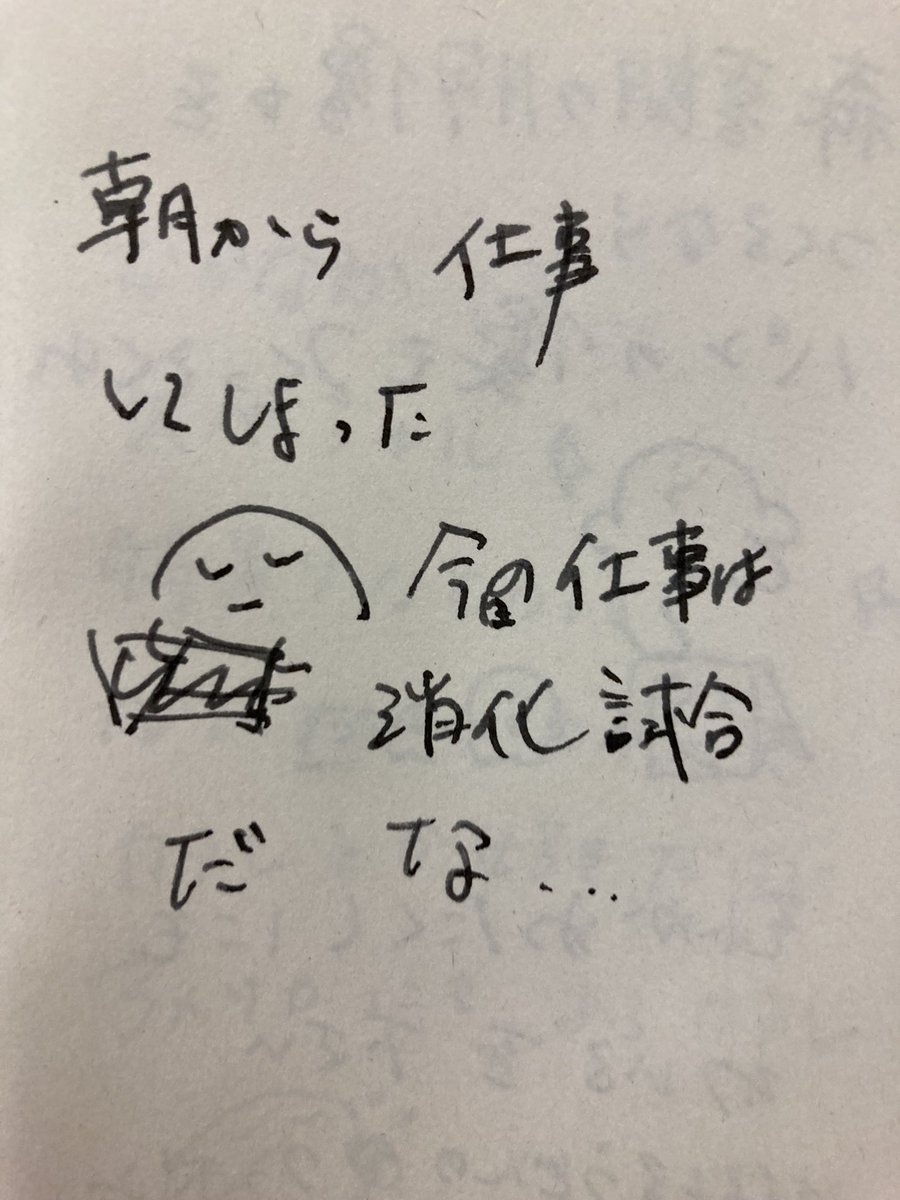 朝から 仕事
してしまった
今日の仕事は
消化試合
だ な...